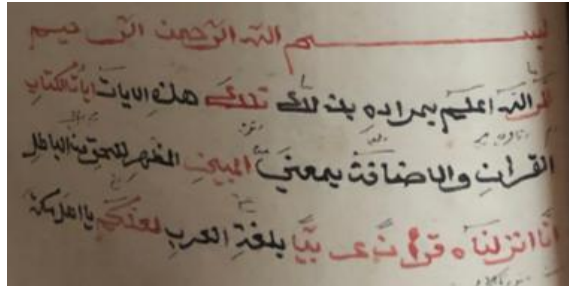 بســـــم الله الرحمن الرحيم
الر الله اعلم بمراده بذلك تلك هذه الايات ايات الكتاب
القران والاضافة بمعني من المبين المظهر للحق من الباطل
انا انزلناه قرءنا عربيا بلغة العرب لعلكم يا اهل مكة